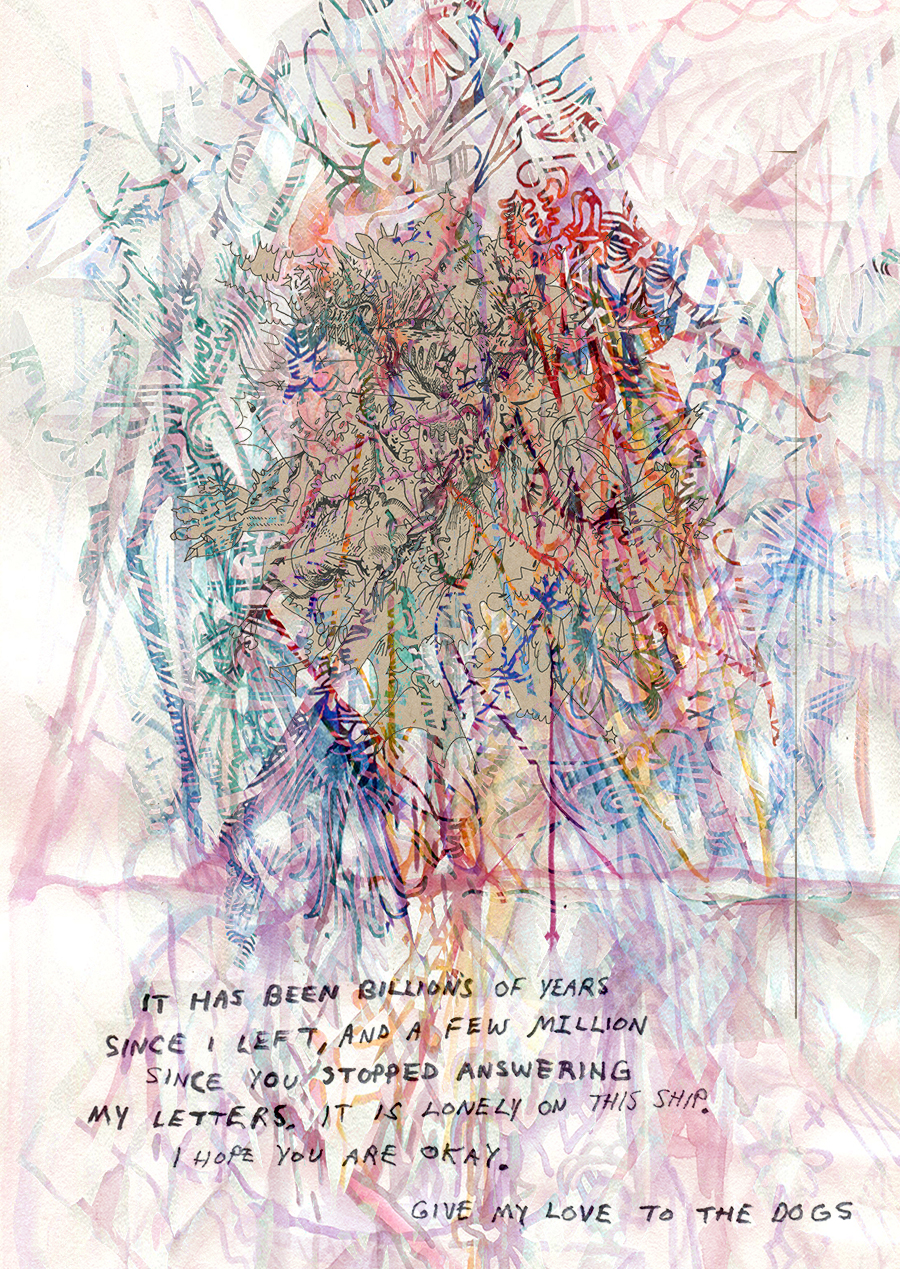 IT HAS BEEN BILLIONS OF YEARS
SINCE I LEFT, AND A FEW MILLION
SINCE YOU STOPPED ANSWERING
MY LETTERS. IT IS LONELY ON THIS SHIP.
I HOPE YOU ARE OKAY.
GIVE MY LOVE TO THE DOGS